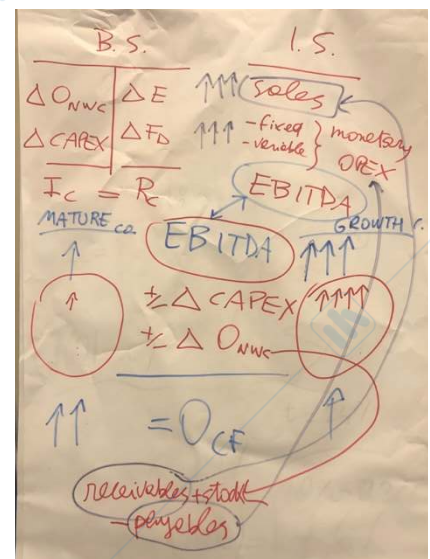 B.S. I.S.
Δ O_NWC Δ E ↑↑↑ sales
Δ CAPEX Δ F_D ↑↑↑ - fixed - variable } monetary OPEX
I_C = R_C EBITDA
MATURE CO. EBITDA GROWTH C.
↑ ↑↑↑
↑ +/- Δ CAPEX ↑↑↑↑
+/- Δ O_NWC
↑↑ = O_CF ↑
receivables + stock
- payables